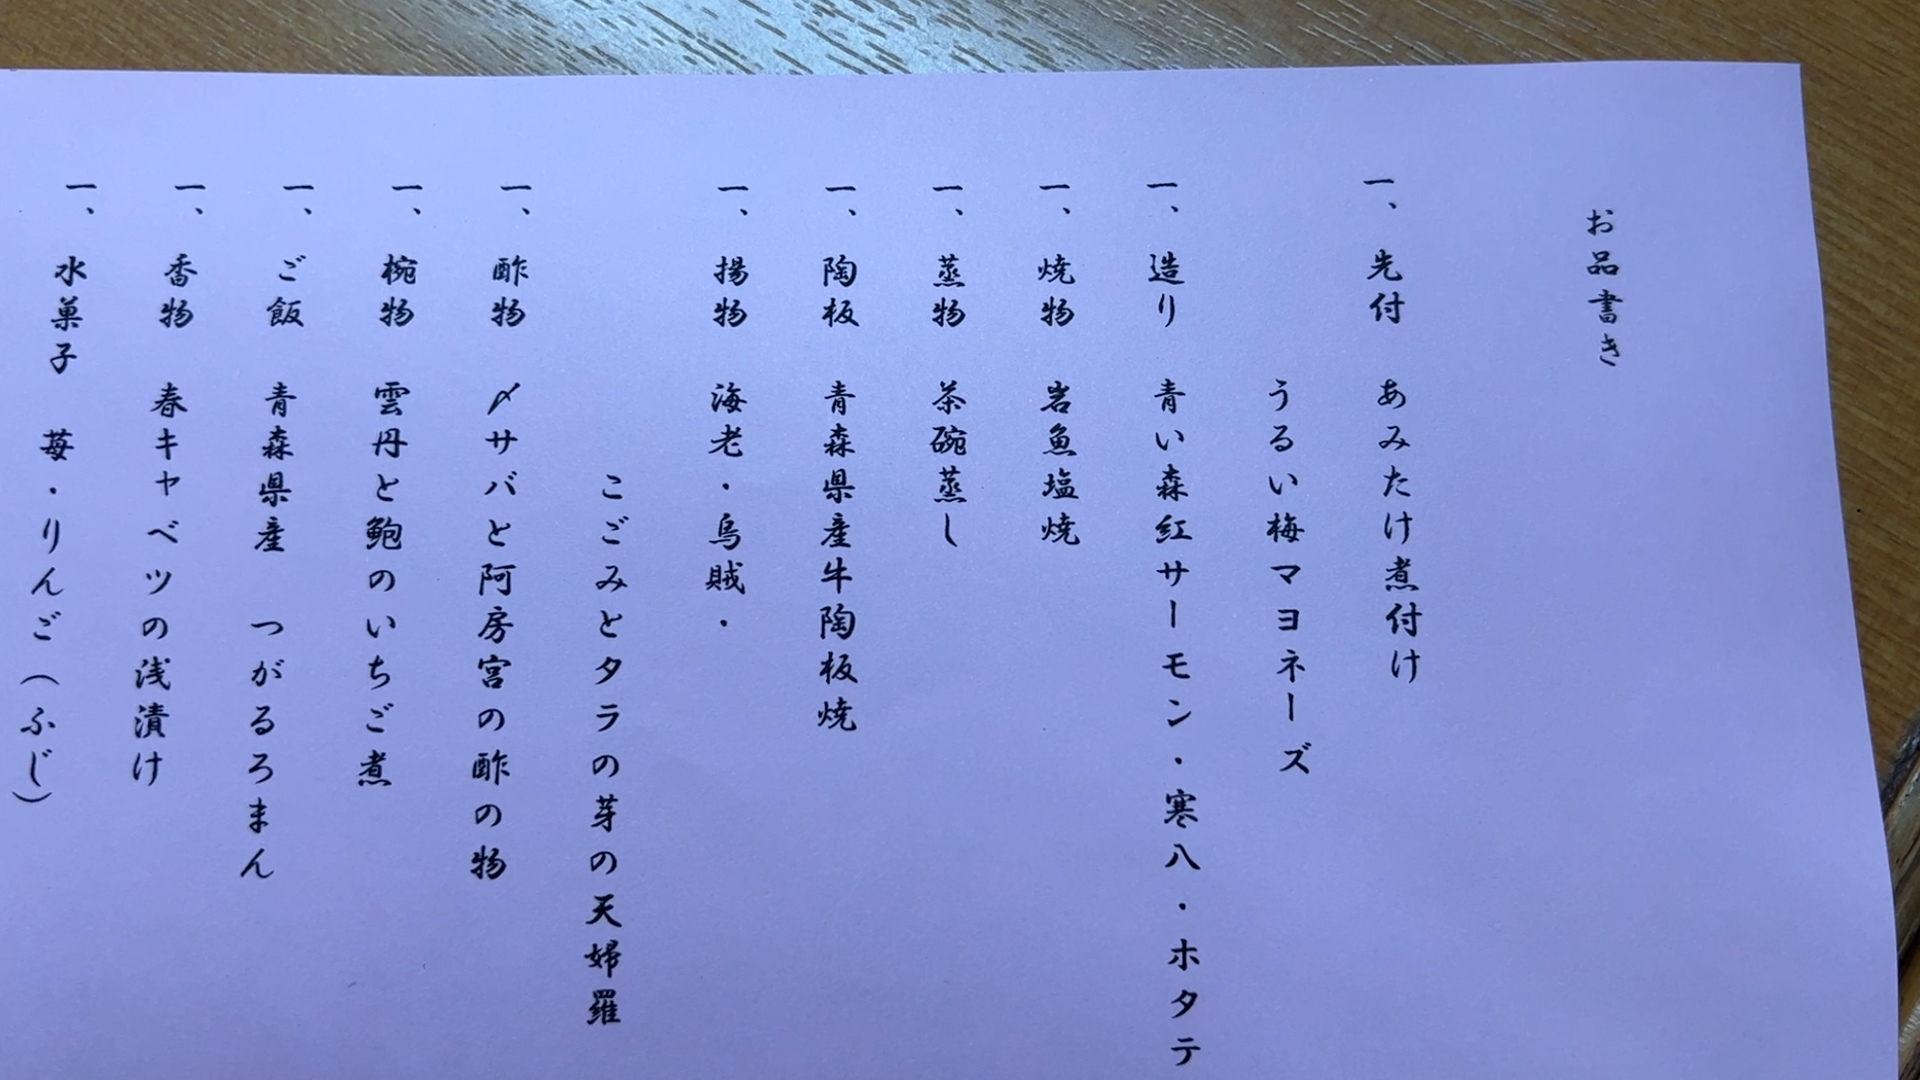 お品書き
一、先付 あみたけ煮付け
うるい梅マヨネーズ
一、造り 青い森紅サーモン・寒八・ホタテ
一、焼物 岩魚塩焼
一、蒸物 茶碗蒸し
一、陶板 青森県産牛陶板焼
一、揚物 海老・烏賊・
こごみとタラの芽の天婦羅
一、酢物 〆サバと阿房宮の酢の物
一、椀物 雲丹と鮑のいちご煮
一、ご飯 青森県産 つがるろまん
一、香物 春キャベツの浅漬け
一、水菓子 苺・りんご(ふじ)